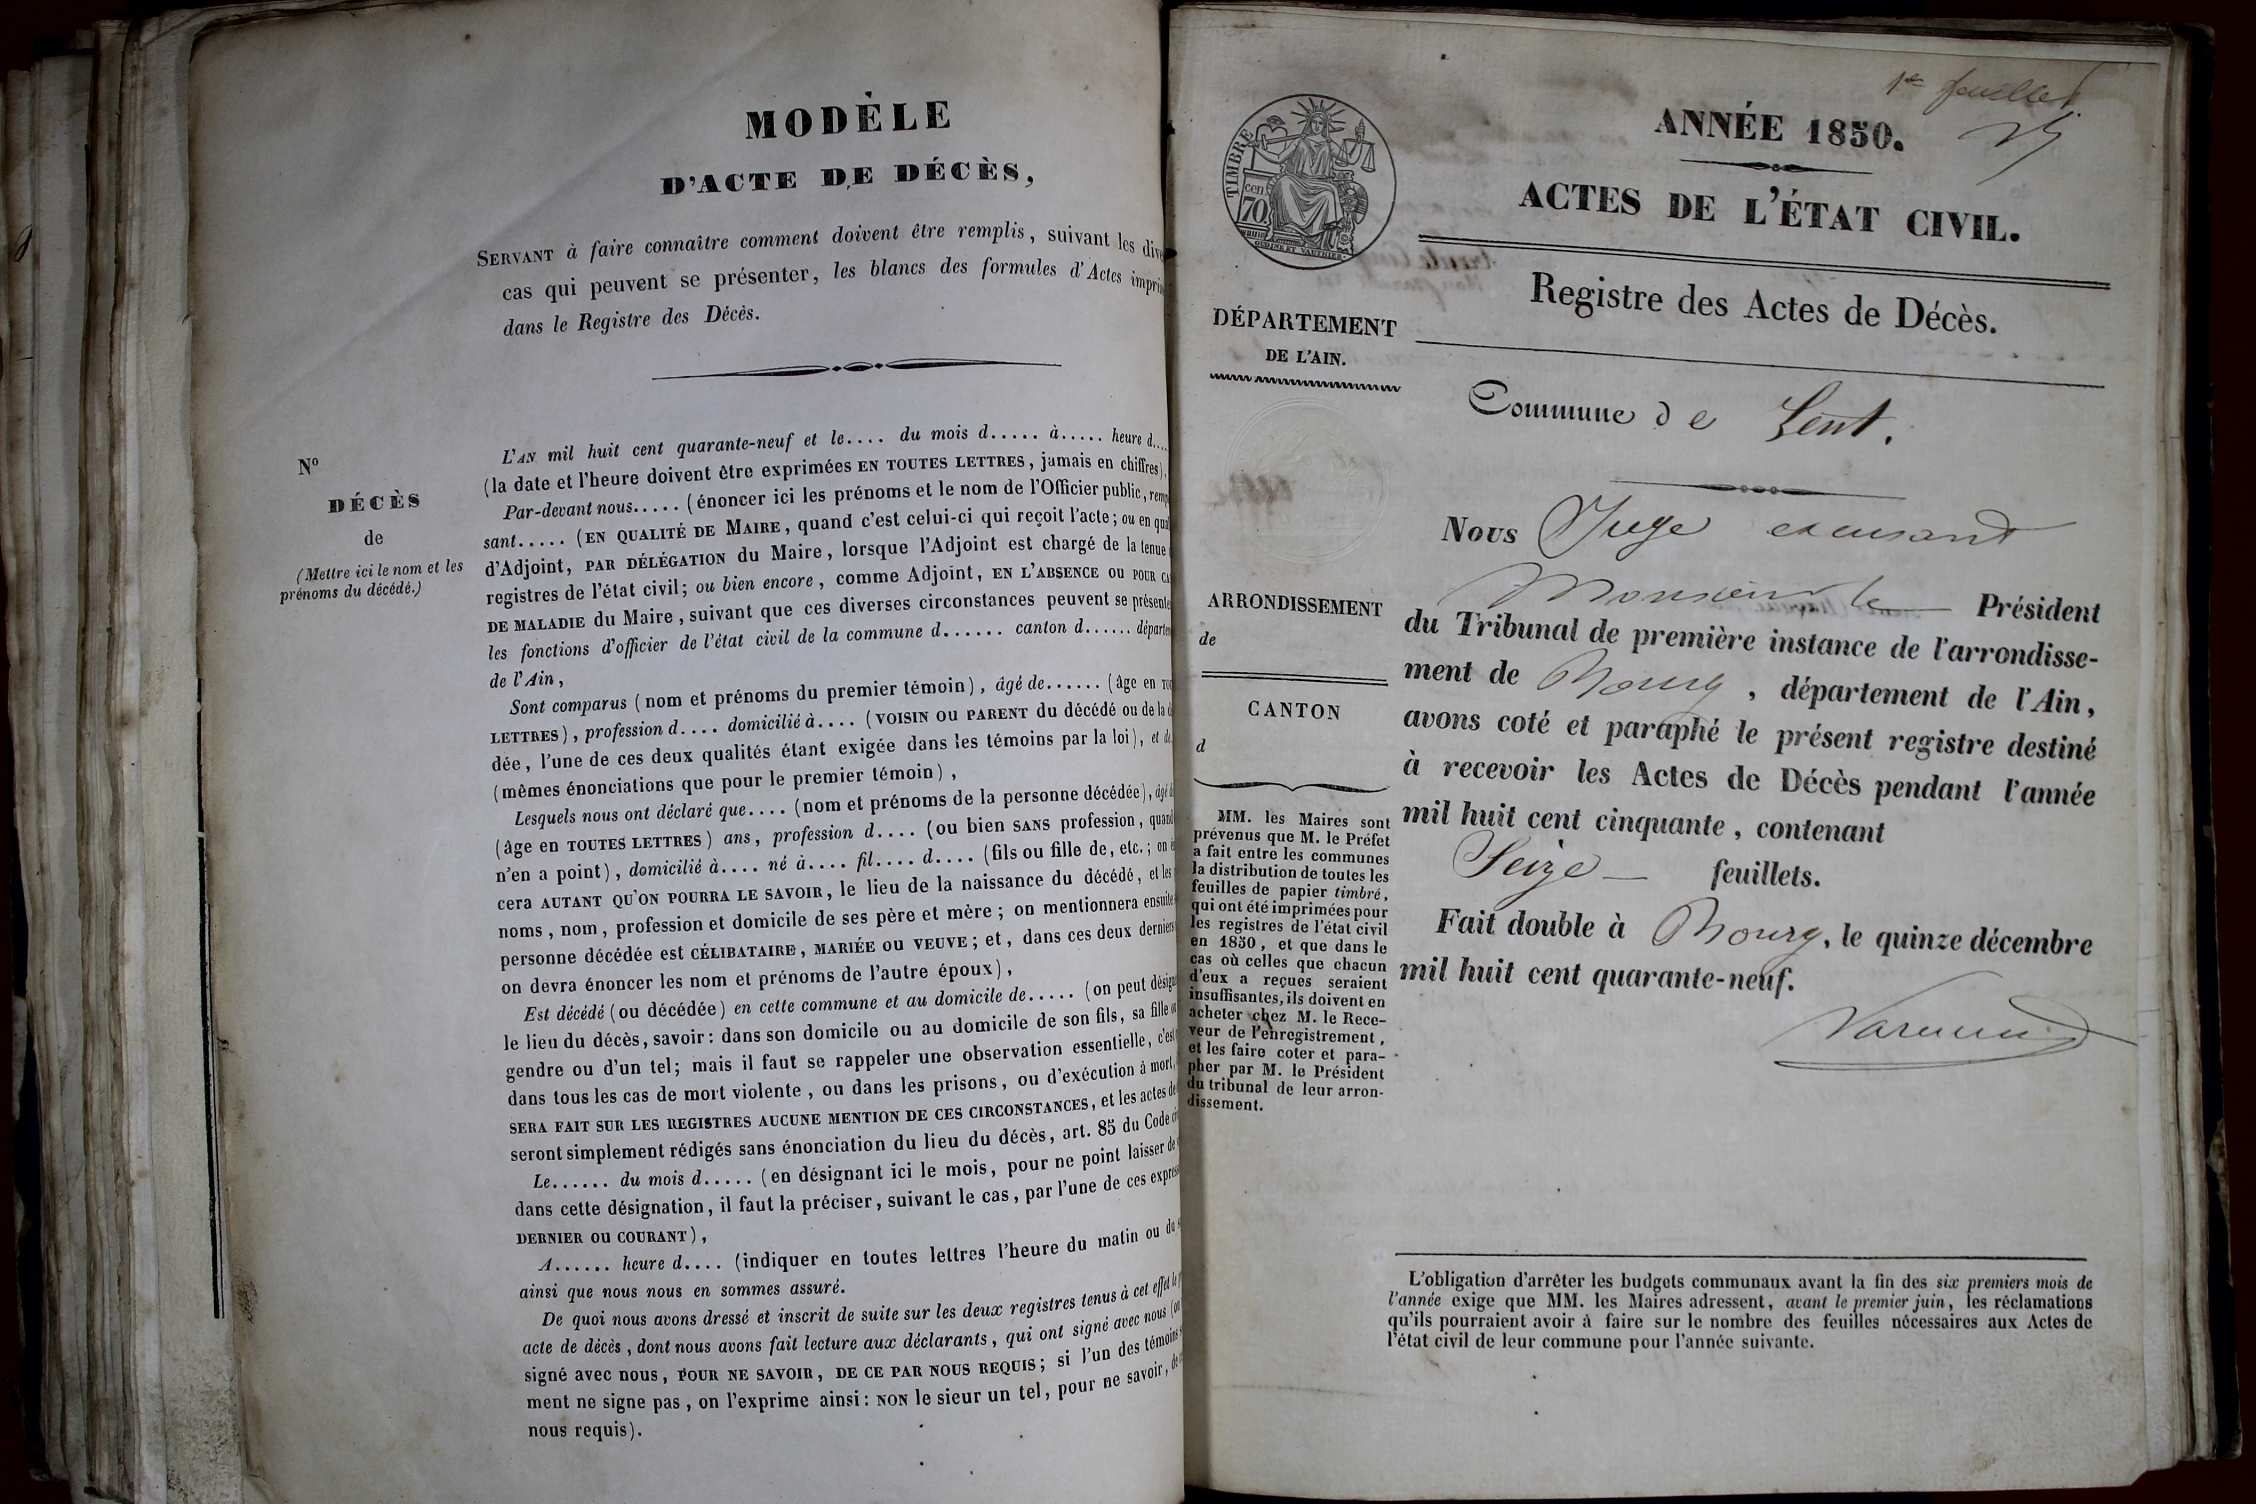 MODÈLE
D'ACTE DE DÉCÈS,
SERVANT à faire connaître comment doivent être remplis, suivant les dive
cas qui peuvent se présenter, les blancs des formules d'Actes imprim
dans le Registre des Décès.
N°
DÉCÈS
de
(Mettre ici le nom et les
prénoms du décédé.)
L'AN mil huit cent quarante-neuf et le.... du mois d..... à..... heure d....
(la date et l'heure doivent être exprimées EN TOUTES LETTRES, jamais en chiffres).
Par-devant nous..... (énoncer ici les prénoms et le nom de l'Officier public, remp
sant..... (EN QUALITÉ DE MAIRE, quand c'est celui-ci qui reçoit l'acte; ou en qual
d'Adjoint, PAR DÉLÉGATION du Maire, lorsque l'Adjoint est chargé de la tenue
registres de l'état civil; ou bien encore, comme Adjoint, EN L'ABSENCE OU POUR CA
DE MALADIE du Maire, suivant que ces diverses circonstances peuvent se présente
les fonctions d'officier de l'état civil de la commune d...... canton d...... départem
de l'Ain,
Sont comparus (nom et prénoms du premier témoin), âgé de...... (âge en TOU
LETTRES), profession d.... domicilié à.... (VOISIN OU PARENT du décédé ou de la d
dée, l'une de ces deux qualités étant exigée dans les témoins par la loi), et de
(mêmes énonciations que pour le premier témoin),
Lesquels nous ont déclaré que.... (nom et prénoms de la personne décédée), âgé d
(âge en TOUTES LETTRES) ans, profession d.... (ou bien SANS profession, quand
n'en a point), domicilié à.... né à.... fil.... d.... (fils ou fille de, etc.; on é
cera AUTANT QU'ON POURRA LE SAVOIR, le lieu de la naissance du décédé, et les
noms, nom, profession et domicile de ses père et mère; on mentionnera ensuite
personne décédée est CÉLIBATAIRE, MARIÉE OU VEUVE; et, dans ces deux derniers
on devra énoncer les nom et prénoms de l'autre époux),
Est décédé (ou décédée) en cette commune et au domicile de..... (on peut désign
le lieu du décès, savoir: dans son domicile ou au domicile de son fils, sa fille ou
gendre ou d'un tel; mais il faut se rappeler une observation essentielle, c'est
dans tous les cas de mort violente, ou dans les prisons, ou d'exécution à mort,
SERA FAIT SUR LES REGISTRES AUCUNE MENTION DE CES CIRCONSTANCES, et les actes de
seront simplement rédigés sans énonciation du lieu du décès, art. 85 du Code ci
Le...... du mois d..... (en désignant ici le mois, pour ne point laisser de
dans cette désignation, il faut la préciser, suivant le cas, par l'une de ces expres
DERNIER OU COURANT),
A...... heure d.... (indiquer en toutes lettres l'heure du matin ou du s
ainsi que nous nous en sommes assuré.
De quoi nous avons dressé et inscrit de suite sur les deux registres tenus à cet effet le p
acte de décès, dont nous avons fait lecture aux déclarants, qui ont signé avec nous (ou
signé avec nous, POUR NE SAVOIR, DE CE PAR NOUS REQUIS; si l'un des témoins
ment ne signe pas, on l'exprime ainsi: NON le sieur un tel, pour ne savoir, de
nous requis).
1er feuillet
ANNÉE 1850.
ACTES DE L'ÉTAT CIVIL.
TIMBRE
cen
70
OUDINE ET VAUTHIER
Registre des Actes de Décès.
DÉPARTEMENT
DE L'AIN.
Commune de Lent.
Nous Juge excusant
Monsieur le Président
du Tribunal de première instance de l'arrondisse-
ment de Bourg, département de l'Ain,
avons coté et paraphé le présent registre destiné
à recevoir les Actes de Décès pendant l'année
mil huit cent cinquante, contenant
Seize feuillets.
Fait double à Bourg, le quinze décembre
mil huit cent quarante-neuf.
ARRONDISSEMENT
de
CANTON
d
MM. les Maires sont
prévenus que M. le Préfet
a fait entre les communes
la distribution de toutes les
feuilles de papier timbré,
qui ont été imprimées pour
les registres de l'état civil
en 1850, et que dans le
cas où celles que chacun
d'eux a reçues seraient
insuffisantes, ils doivent en
acheter chez M. le Rece-
veur de l'enregistrement,
et les faire coter et para-
pher par M. le Président
du tribunal de leur arron-
dissement.
L'obligation d'arrêter les budgets communaux avant la fin des six premiers mois de
l'année exige que MM. les Maires adressent, avant le premier juin, les réclamations
qu'ils pourraient avoir à faire sur le nombre des feuilles nécessaires aux Actes de
l'état civil de leur commune pour l'année suivante.